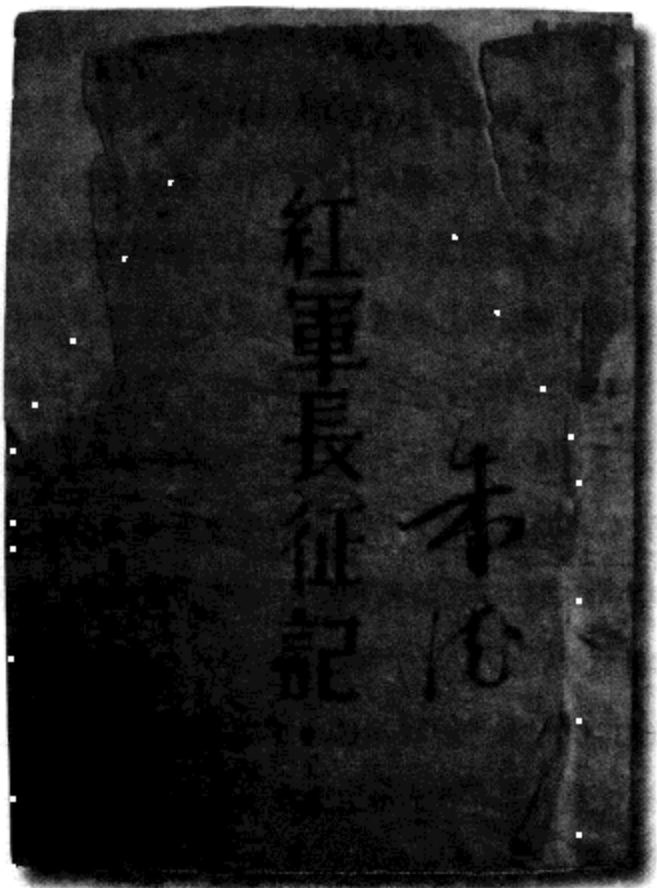 紅軍長征記
朱德